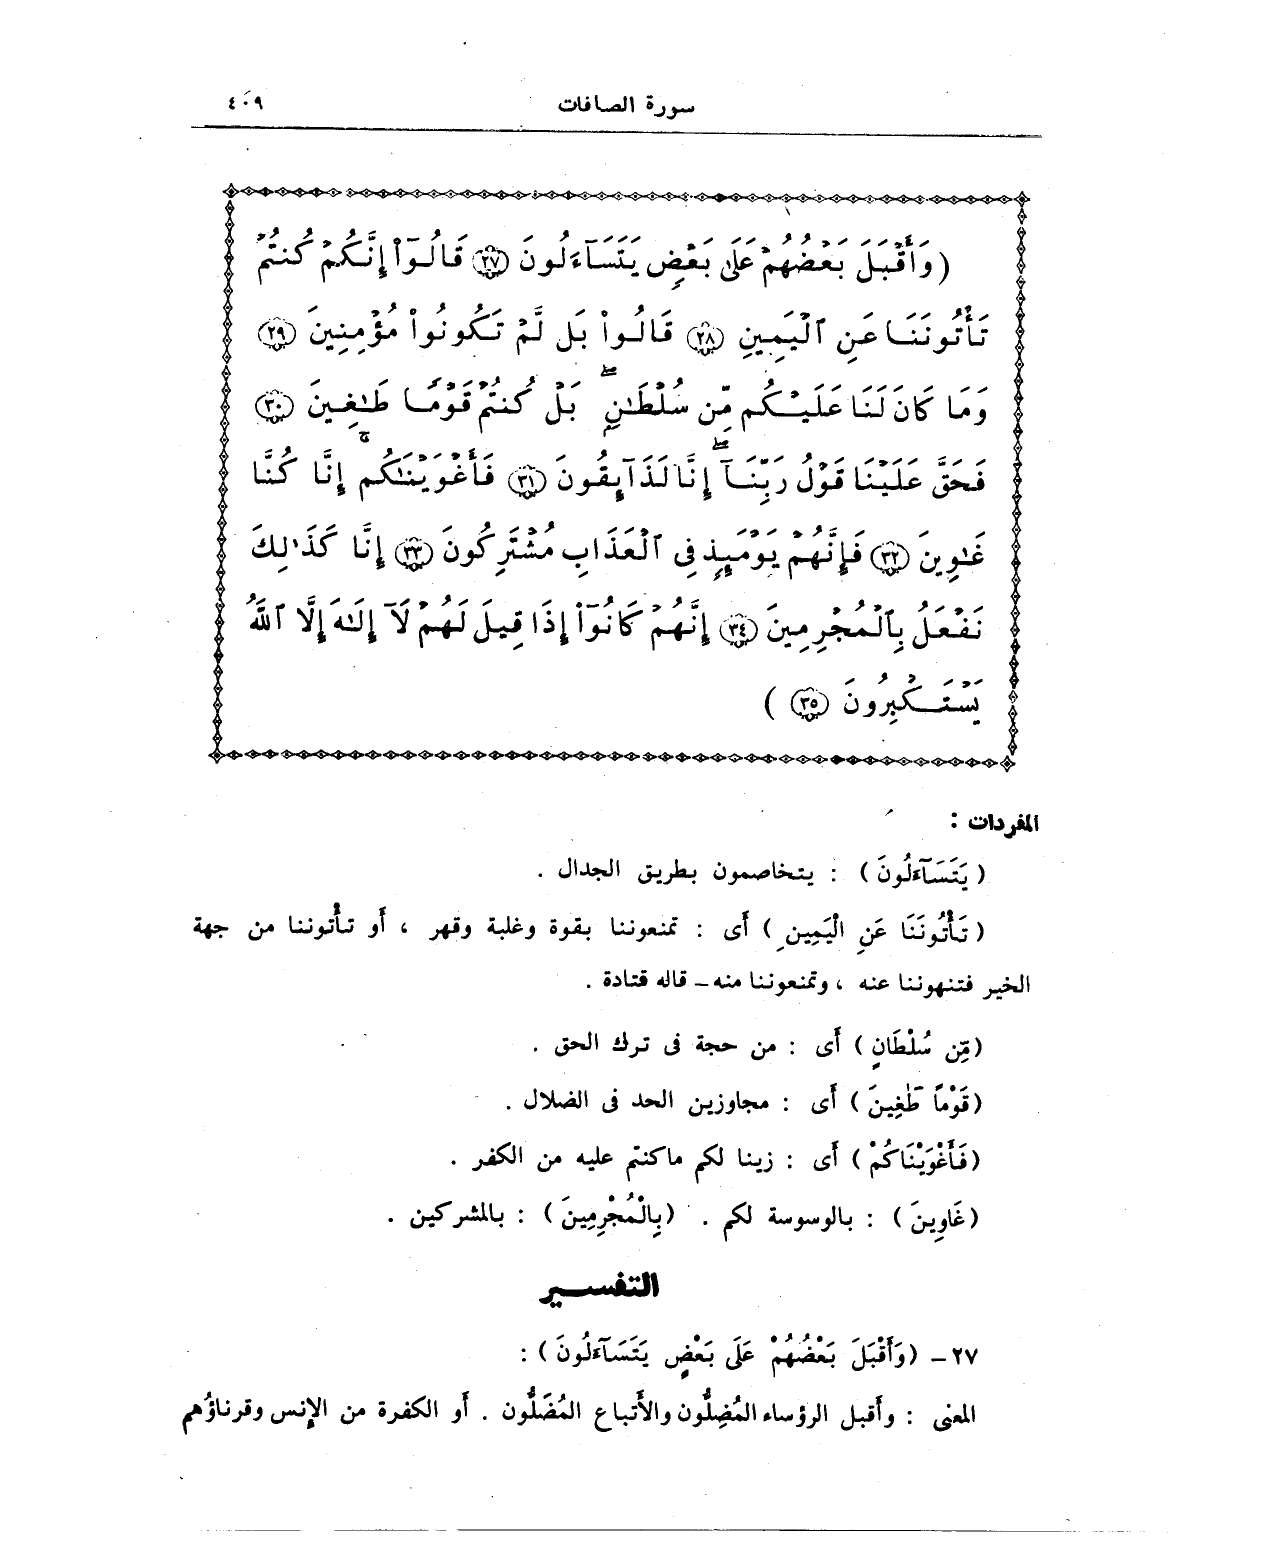 سورة الصافات ٤٠٩
(وَأَقْبَلَ بَعْضُهُمْ عَلَىٰ بَعْضٍ يَتَسَآءَلُونَ ٢٧ قَالُوٓا۟ إِنَّكُمْ كُنتُمْ
تَأْتُونَنَا عَنِ ٱلْيَمِينِ ٢٨ قَالُوا۟ بَل لَّمْ تَكُونُوا۟ مُؤْمِنِينَ ٢٩
وَمَا كَانَ لَنَا عَلَيْكُم مِّن سُلْطَٰنٍۭ ۖ بَلْ كُنتُمْ قَوْمًا طَٰغِينَ ٣٠
فَحَقَّ عَلَيْنَا قَوْلُ رَبِّنَآ ۖ إِنَّا لَذَآئِقُونَ ٣١ فَأَغْوَيْنَٰكُمْ إِنَّا كُنَّا
غَٰوِينَ ٣٢ فَإِنَّهُمْ يَوْمَئِذٍ فِى ٱلْعَذَابِ مُشْتَرِكُونَ ٣٣ إِنَّا كَذَٰلِكَ
نَفْعَلُ بِٱلْمُجْرِمِينَ ٣٤ إِنَّهُمْ كَانُوٓا۟ إِذَا قِيلَ لَهُمْ لَآ إِلَٰهَ إِلَّا ٱللَّهُ
يَسْتَكْبِرُونَ ٣٥ )
المفردات :
(يَتَسَآءَلُونَ) : يتخاصمون بطريق الجدال .
(تَأْتُونَنَا عَنِ الْيَمِينِ) أَى : تمنعوننا بقوة وغلبة وقهر ، أَو تأْتوننا من جهة
الخير فتنهوننا عنه ، وتمنعوننا منه – قاله قتادة .
(مِّن سُلْطَانٍ) أَى : من حجة فى ترك الحق .
(قَوْمًا طَٰغِينَ) أَى : مجاوزين الحد فى الضلال .
(فَأَغْوَيْنَاكُمْ) أَى : زينا لكم ماكنتم عليه من الكفر .
(غَاوِينَ) : بالوسوسة لكم . (بِالْمُجْرِمِينَ) : بالمشركين .
التفسير
٢٧ – (وَأَقْبَلَ بَعْضُهُمْ عَلَى بَعْضٍ يَتَسَآءَلُونَ) :
المعنى : وأَقبل الرؤساء المُضِلُّون والأَتباع المُضَلُّون . أَو الكفرة من الإِنس وقرناؤُهم